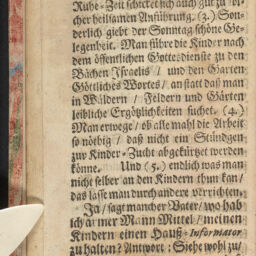 Ruhe-Zeit schicket sich auch gut zu sol-
cher heilsamen Anführung. (3.) Son-
derlich giebt der Sonntag schöne Ge-
legenheit. Man führe die Kinder nach
dem öffentlichen Gottesdienste zu den
Bächen Israelis / und den Garten
Göttliches Wortes / an statt daß man
in Wäldern / Feldern und Gärten
leibliche Ergötzlichkeiten suchet. (4.)
Man erwege / ob alle mahl die Arbeit
so nöthig / daß nicht ein Stündgen
zur Kinder-Zucht abgekürtzet werden
könne. Und (5.) endlich was man
nicht selber an den Kindern thun kan /
das lasse man durch andere verrichten.
Ja / sagt mancher Vater / wo hab
ich armer Mann Mittel / meinen
Kindern einen Hauß-Informator
zu halten? Antwort: Siehe wohl zu /